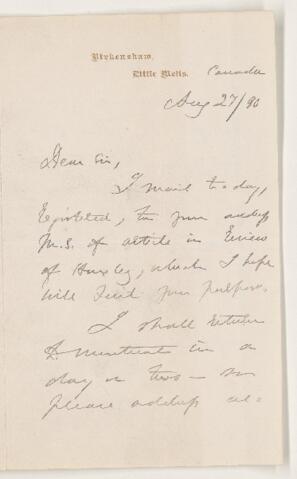 Birkenshaw,
Little Metis. Canada
Aug 27/90
Dear Sir,
I mail to day,
registered, to your address
M.S. of article in Review
of Huxley, which I hope
will suit your purpose.
I shall return
to Montreal in a
day or two — so
please address as